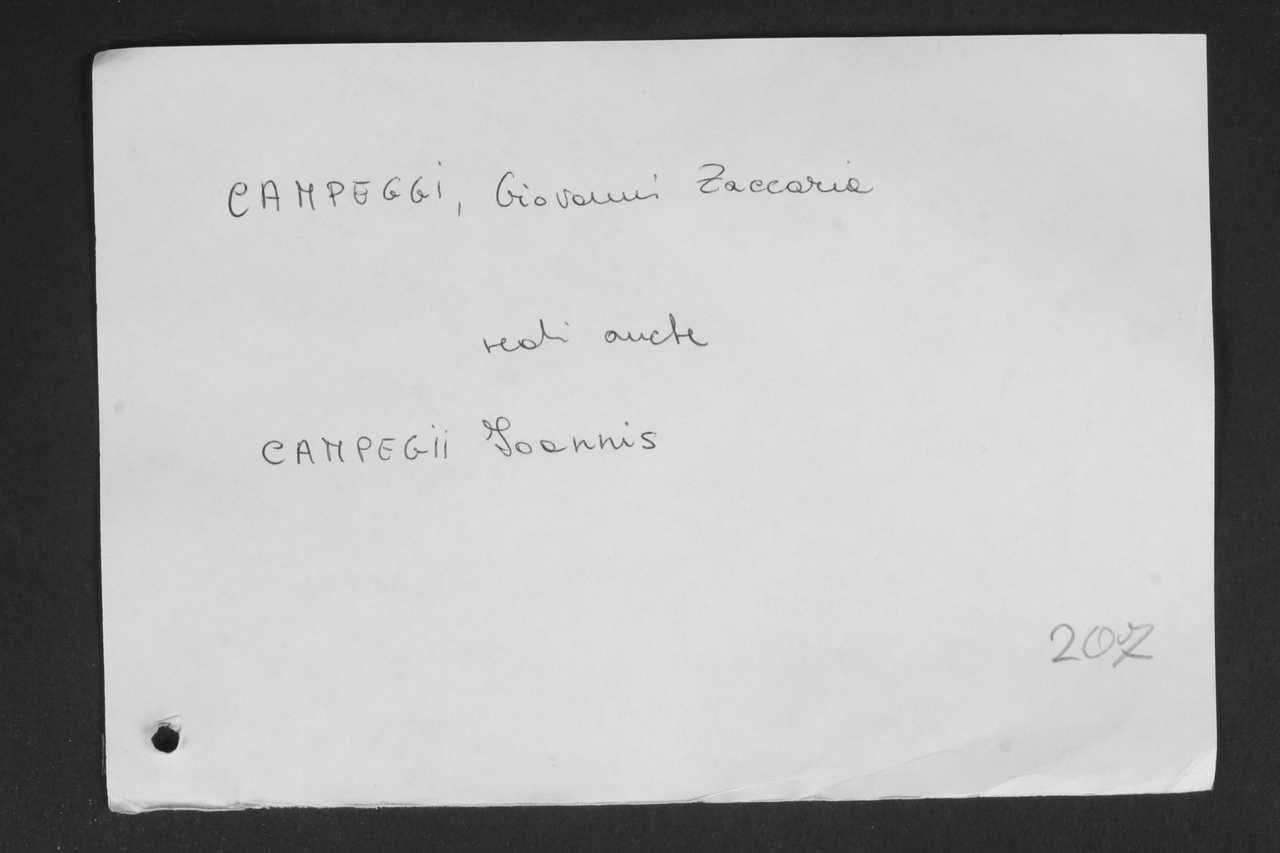 CAMPEGGI, Giovanni Zaccaria
vedi anche
CAMPEGII Joannis
207